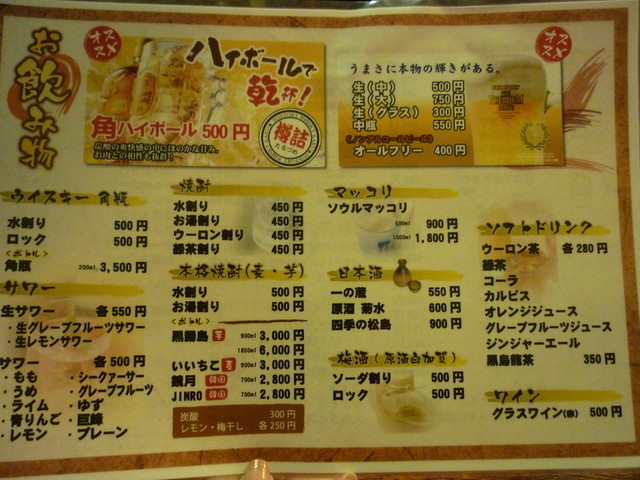 お飲み物
オススメ
ハイボールで
乾杯!
角ハイボール 500円
炭酸の爽快感の中にほのかな甘み。
お肉との相性も抜群!
樽詰
たるづめ
オススメ
うまさに本物の輝きがある。
生(中) 500円
生(大) 750円
生(グラス) 300円
中瓶 550円
《ノンアルコールビール》
オールフリー 400円
ウイスキー 角瓶
水割り 500円
ロック 500円
<ボトル>
角瓶 200ml 3,500円
サワー
生サワー 各550円
・生グレープフルーツサワー
・生レモンサワー
サワー 各500円
・もも ・シークァーサー
・うめ ・グレープフルーツ
・ライム ・ゆず
・青りんご ・巨峰
・レモン ・プレーン
焼酎
水割り 450円
お湯割り 450円
ウーロン割り 450円
緑茶割り 450円
本格焼酎(麦・芋)
水割り 500円
お湯割り 500円
<ボトル>
黒霧島 芋 900ml 3,000円
1800ml 6,000円
いいちこ 麦 900ml 3,000円
鏡月 韓国 700ml 2,800円
JINRO 韓国 700ml 2,800円
炭酸 300円
レモン・梅干し 各250円
マッコリ
ソウルマッコリ
500ml 900円
1000ml 1,800円
日本酒
一の蔵 550円
原酒 菊水 600円
四季の松島 900円
梅酒(原酒白加賀)
ソーダ割り 500円
ロック 500円
ソフトドリンク
ウーロン茶 各280円
緑茶
コーラ
カルピス
オレンジジュース
グレープフルーツジュース
ジンジャーエール
黒烏龍茶 350円
ワイン
グラスワイン(赤) 500円